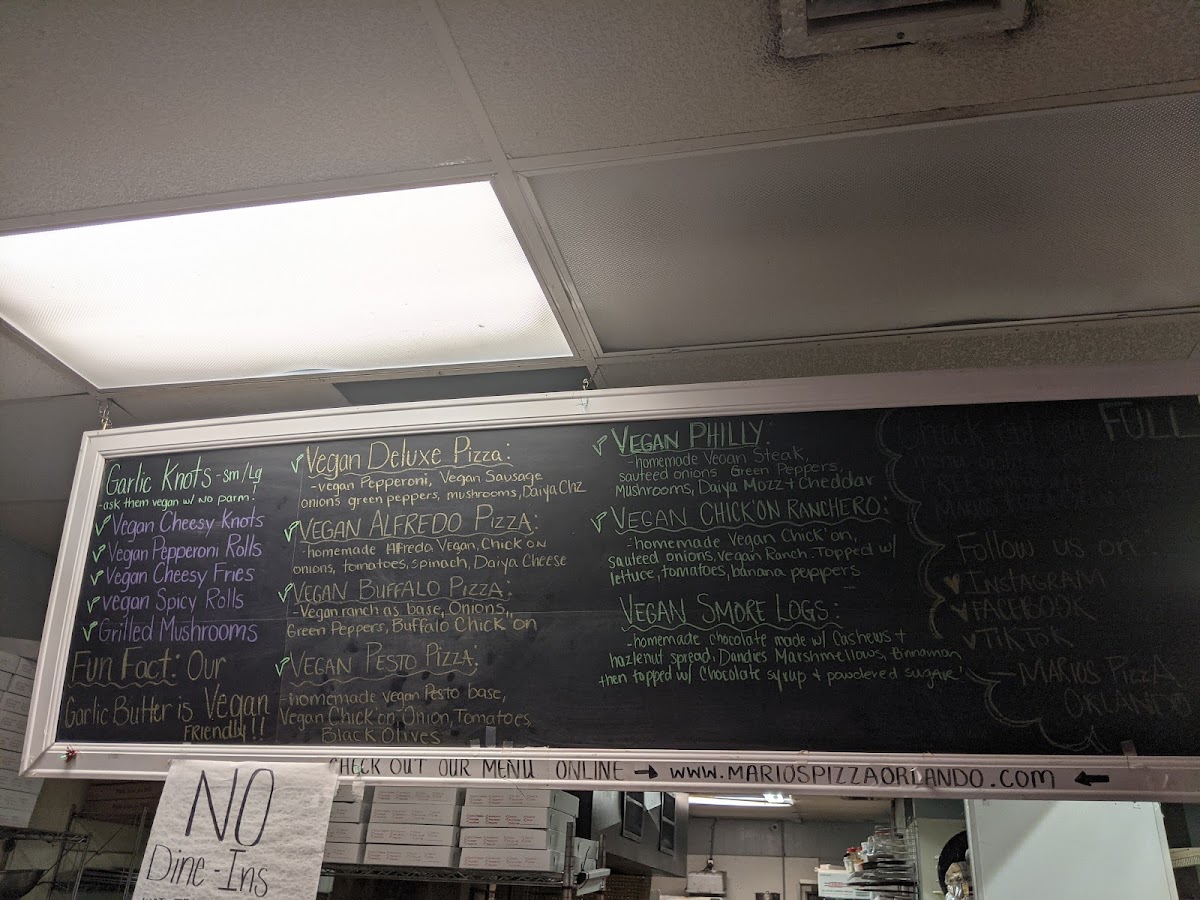 Garlic Knots - sm/Lg
-ask them vegan w/ no parm!
Vegan Cheesy Knots
Vegan Pepperoni Rolls
Vegan Cheesy Fries
vegan Spicy Rolls
Grilled Mushrooms
Fun Fact: Our
Garlic Butter is Vegan
Friendly!!
Vegan Deluxe Pizza:
-vegan Pepperoni, Vegan Sausage
onions green peppers, mushrooms, Daiya Chz
VEGAN ALFREDO PIZZA:
-homemade Alfredo Vegan, Chick'on
onions, tomatoes, spinach, Daiya Cheese
VEGAN BUFFALO PIZZA:
-Vegan ranch as base, Onions,
Green Peppers, Buffalo Chick'on
VEGAN PESTO PIZZA:
-homemade vegan Pesto base,
Vegan Chick'on, Onion, Tomatoes
Black Olives
VEGAN PHILLY:
-homemade Vegan Steak,
sauteed onions Green Peppers,
Mushrooms, Daiya Mozz + Cheddar
VEGAN CHICK'ON RANCHERO:
-homemade Vegan Chick'on,
sauteed onions, vegan Ranch. Topped w/
lettuce, tomatoes, banana peppers
VEGAN SMORE LOGS:
-homemade chocolate made w/ Cashews +
hazlenut spread, Dandies Marshmellows,
then topped w/ Chocolate syrup + powdered sugar
FULL
Follow us on...
INSTAGRAM
FACEBOOK
TIKTOK
MARIOS PIZZA
ORLANDO
CHECK OUT OUR MENU ONLINE → WWW.MARIOSPIZZAORLANDO.COM ←
NO
Dine-Ins